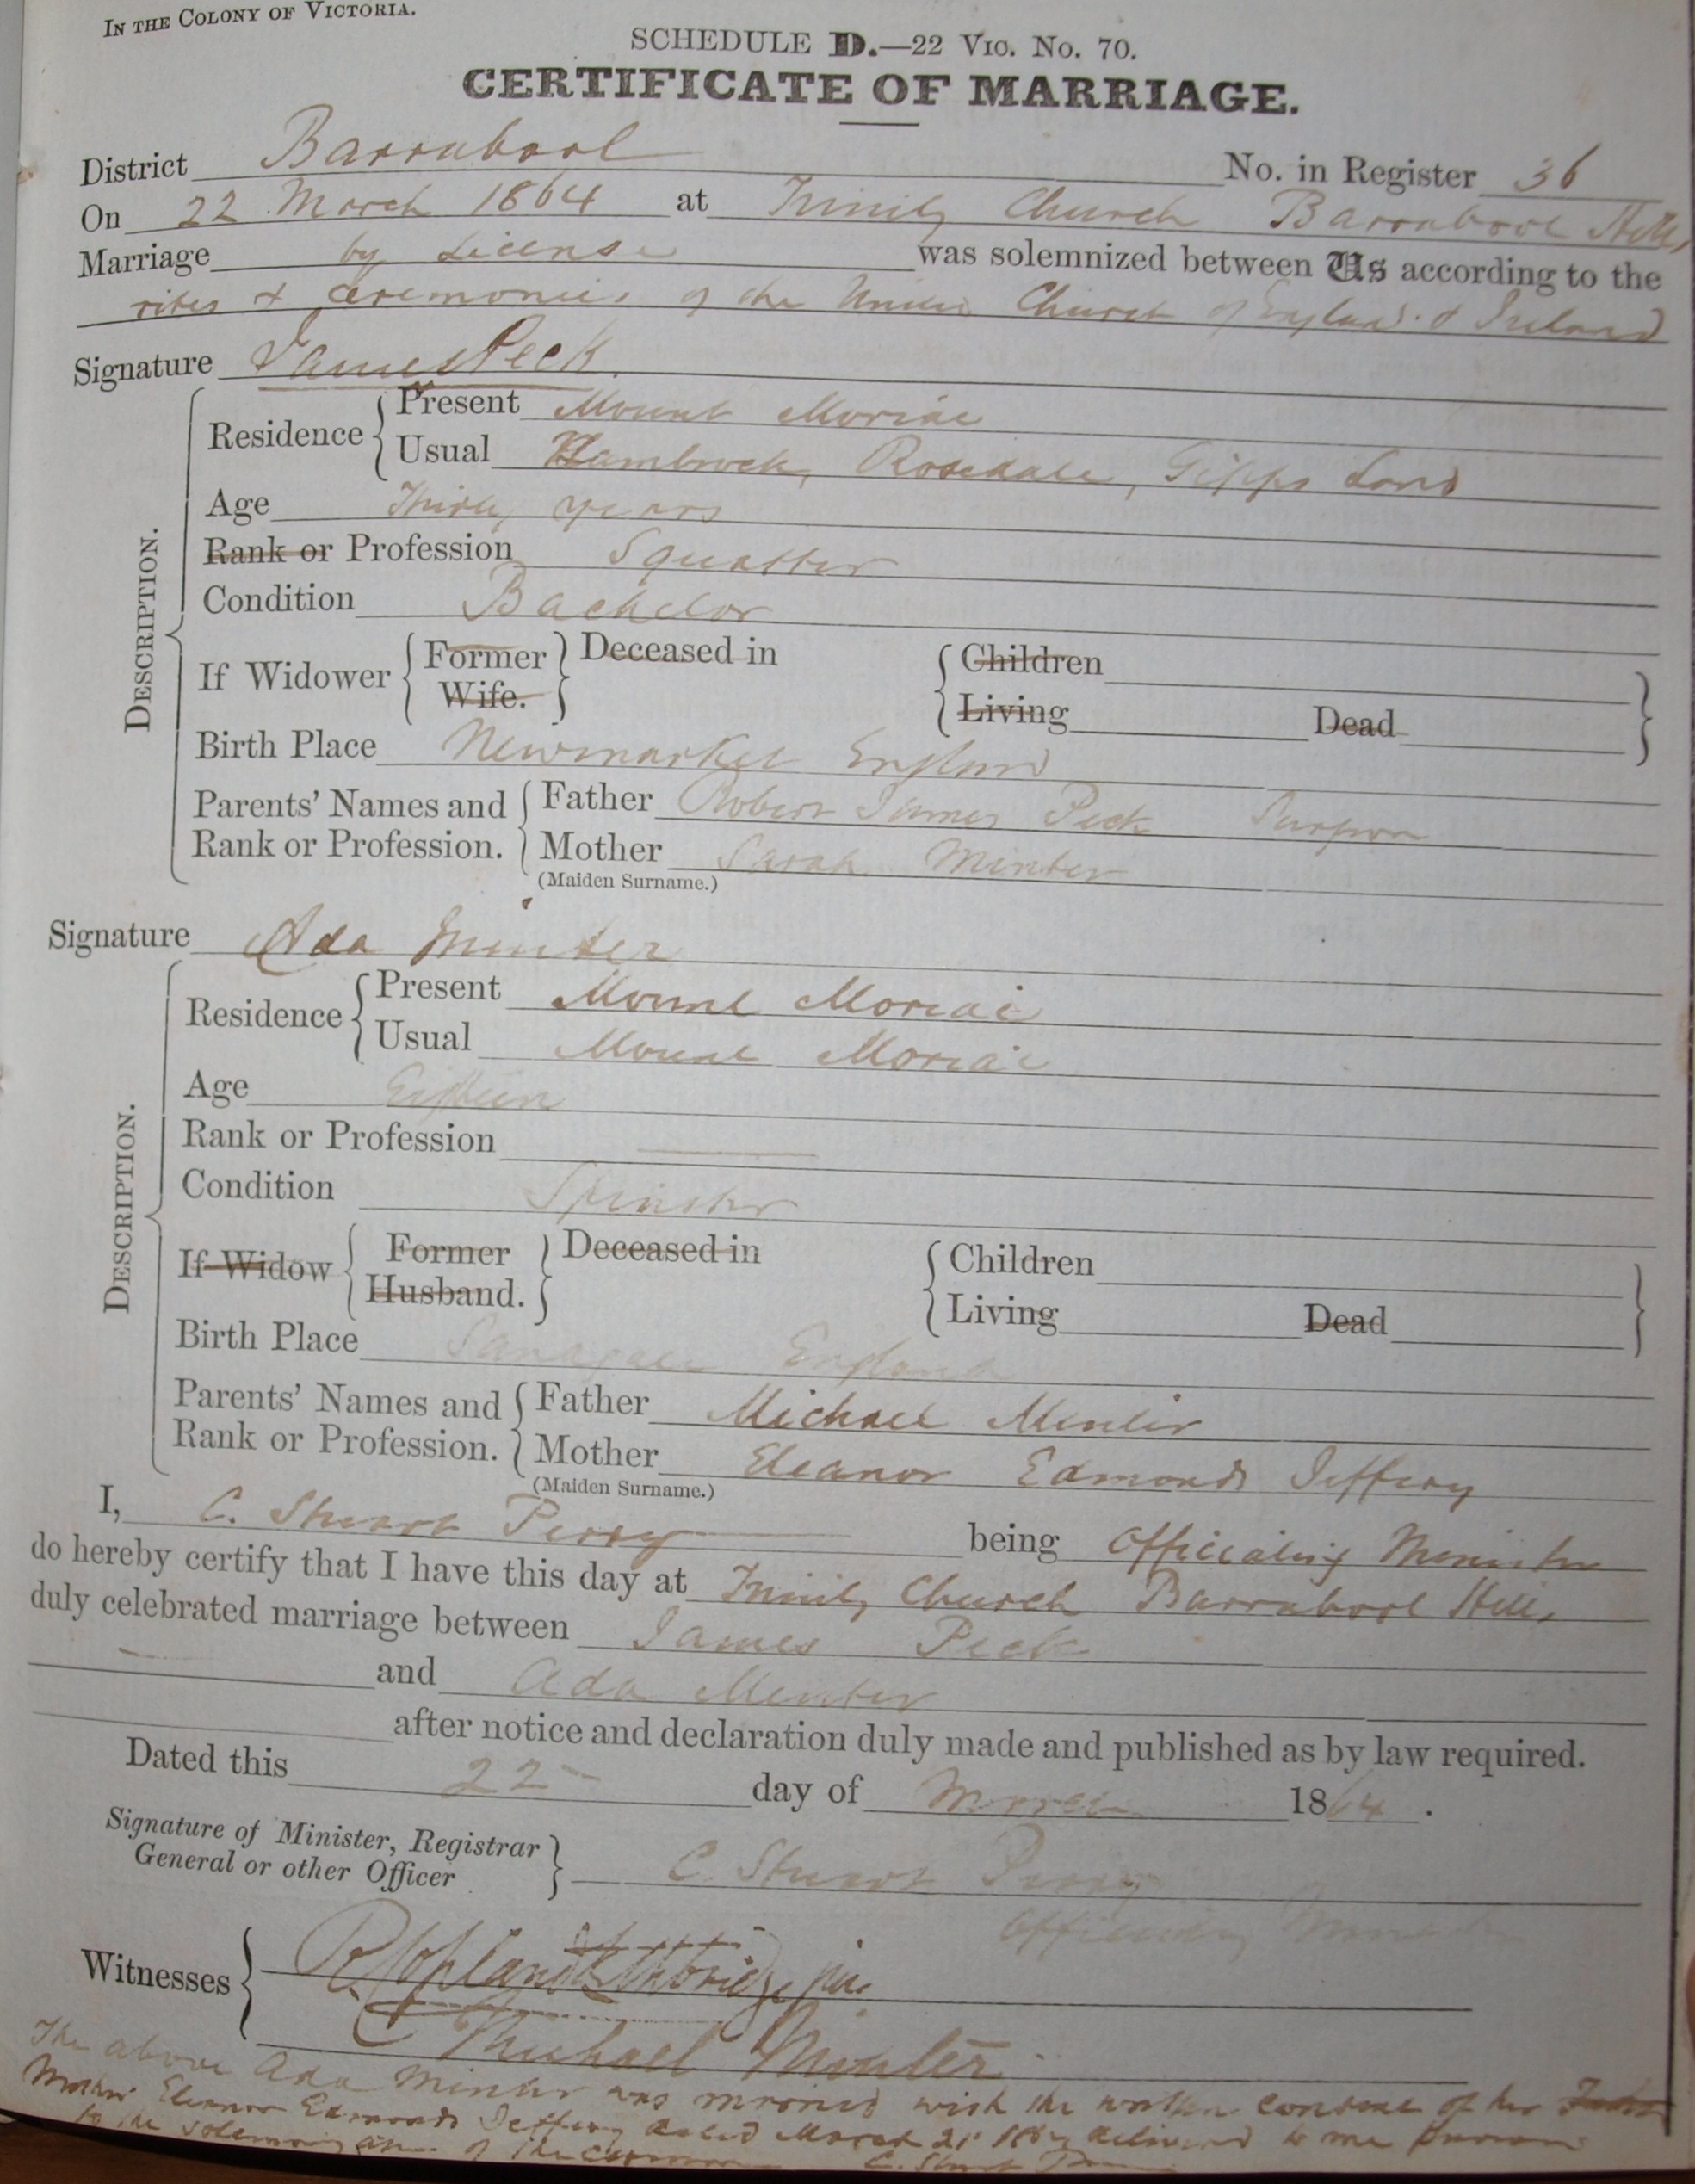 IN THE COLONY OF VICTORIA.
SCHEDULE D.—22 VIC. No. 70.
CERTIFICATE OF MARRIAGE.
District Barrabool No. in Register 36
On 22 March 1864 at Trinity Church Barrabool Hills
Marriage by License was solemnized between Us according to the
rites & Ceremonies of the United Church of England & Ireland
Signature James Peck
Residence Present Mount Moriac
Usual Rosedale, Gipps Land
Age Thirty years
Rank or Profession Squatter
Condition Bachelor
If Widower Former Wife. Deceased in Children
Living Dead
Birth Place Newmarket England
Parents' Names and Rank or Profession. Father Robert James Peck Surgeon
Mother Sarah Minter
(Maiden Surname.)
DESCRIPTION.
Signature Ada Minter
Residence Present Mount Moriac
Usual Mount Moriac
Age Eighteen
Rank or Profession
Condition Spinster
If Widow Former Husband. Deceased in Children
Living Dead
Birth Place England
Parents' Names and Rank or Profession. Father Michael Minter
Mother Eleanor Edmonds Jeffery
(Maiden Surname.)
DESCRIPTION.
I, C. Stuart Perry being Officiating Minister
do hereby certify that I have this day at Trinity Church Barrabool Hills
duly celebrated marriage between James Peck
and Ada Minter
after notice and declaration duly made and published as by law required.
Dated this 22 day of March 1864.
Signature of Minister, Registrar
General or other Officer C. Stuart Perry
Officiating Minister
Witnesses
Michael Minter
The above Ada Minter was married with the written consent of her
Mother Eleanor Edmonds Jeffery dated March 21 delivered to me
to the of the C. Stuart Perry